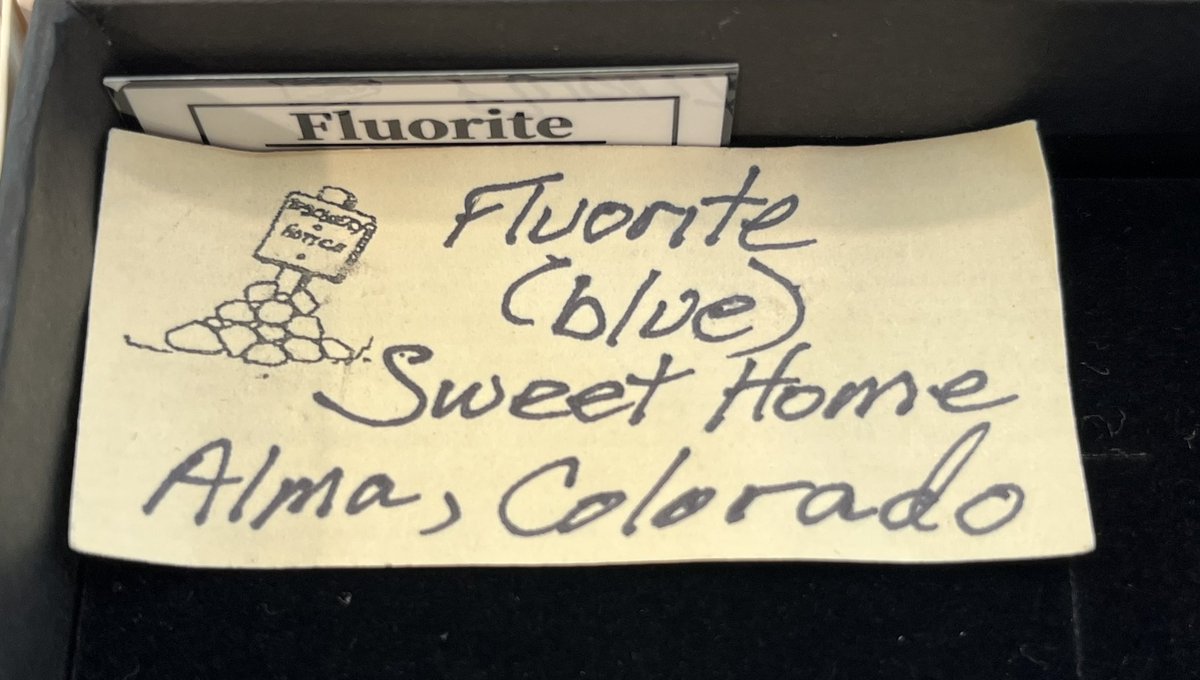 Fluorite
DISCOVERY
NOTICE
Fluorite
(blue)
Sweet Home
Alma, Colorado